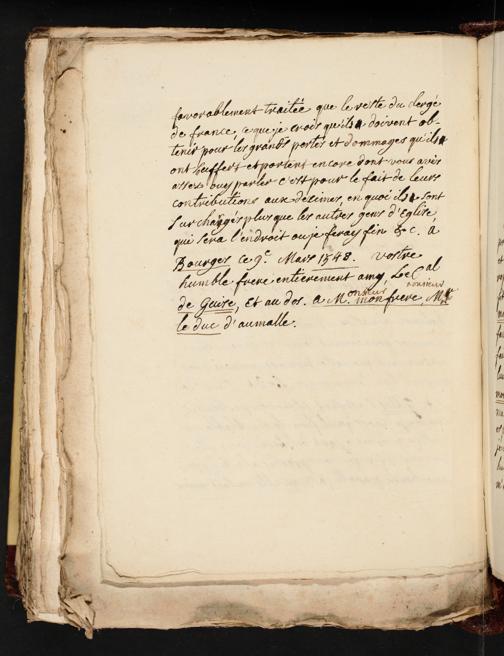 favorablement traitée que le reste du clergé
de france, ce que je crois qu'ils doivent ob-
tenir pour les grands pertes et dommages qu'ils
ont souffert et portent encore dont vous avés
assés ouy parler c'est pour le fait de leurs
contributions aux décimes, en quoi ils sont
surchargés plus que les autres gens d'Eglise,
qui sera l'endroit ou je feray fin &c. a
Bourges ce 9e Mars 1548. Vostre
humble frere entierement amy, Le Cal
de Guise, Et au dos. a Monsieur mon frere, Monsieur
le duc d'aumalle.